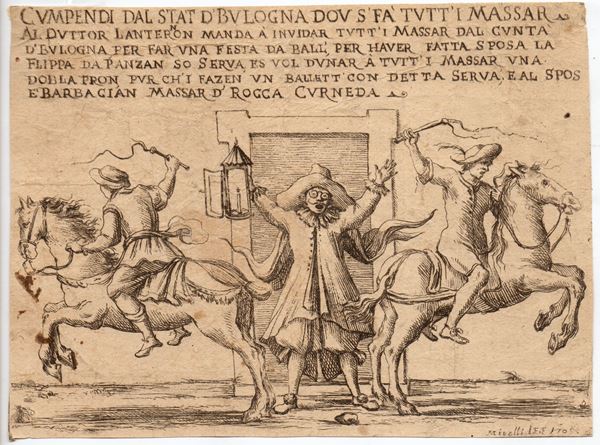 CVMPENDI DAL STAT D'BVLOGNA DOV S'FÀ TVTT'I MASSAR
AL DVTTOR LANTERON MANDA À INVIDAR TVTT'I MASSAR DAL CVNTÀ
D'BVLOGNA PER FAR VNA FESTA DA BALL', PER HAVER FATTA SPOSA LA
FLIPPA DA PANZAN SO SERVA, ES VOL DVNAR À TVTT'I MASSAR VNA
DOBLA PR'ON PVR CH'I FAZEN VN BALLETT CON DETTA SERVA, E AL SPOS
E' BARBAGIAN MASSAR D' ROCCA CVRNEDA
Mitelli I.F.F. 1705